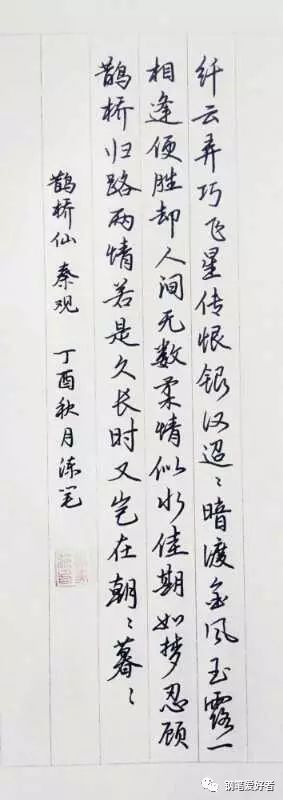 纤云弄巧飞星传恨银汉迢〻暗渡金风玉露一
相逢便胜却人间无数柔情似水佳期如梦忍顾
鹊桥归路两情若是久长时又岂在朝〻暮〻
鹊桥仙 秦观 丁酉秋月
钢笔爱好者